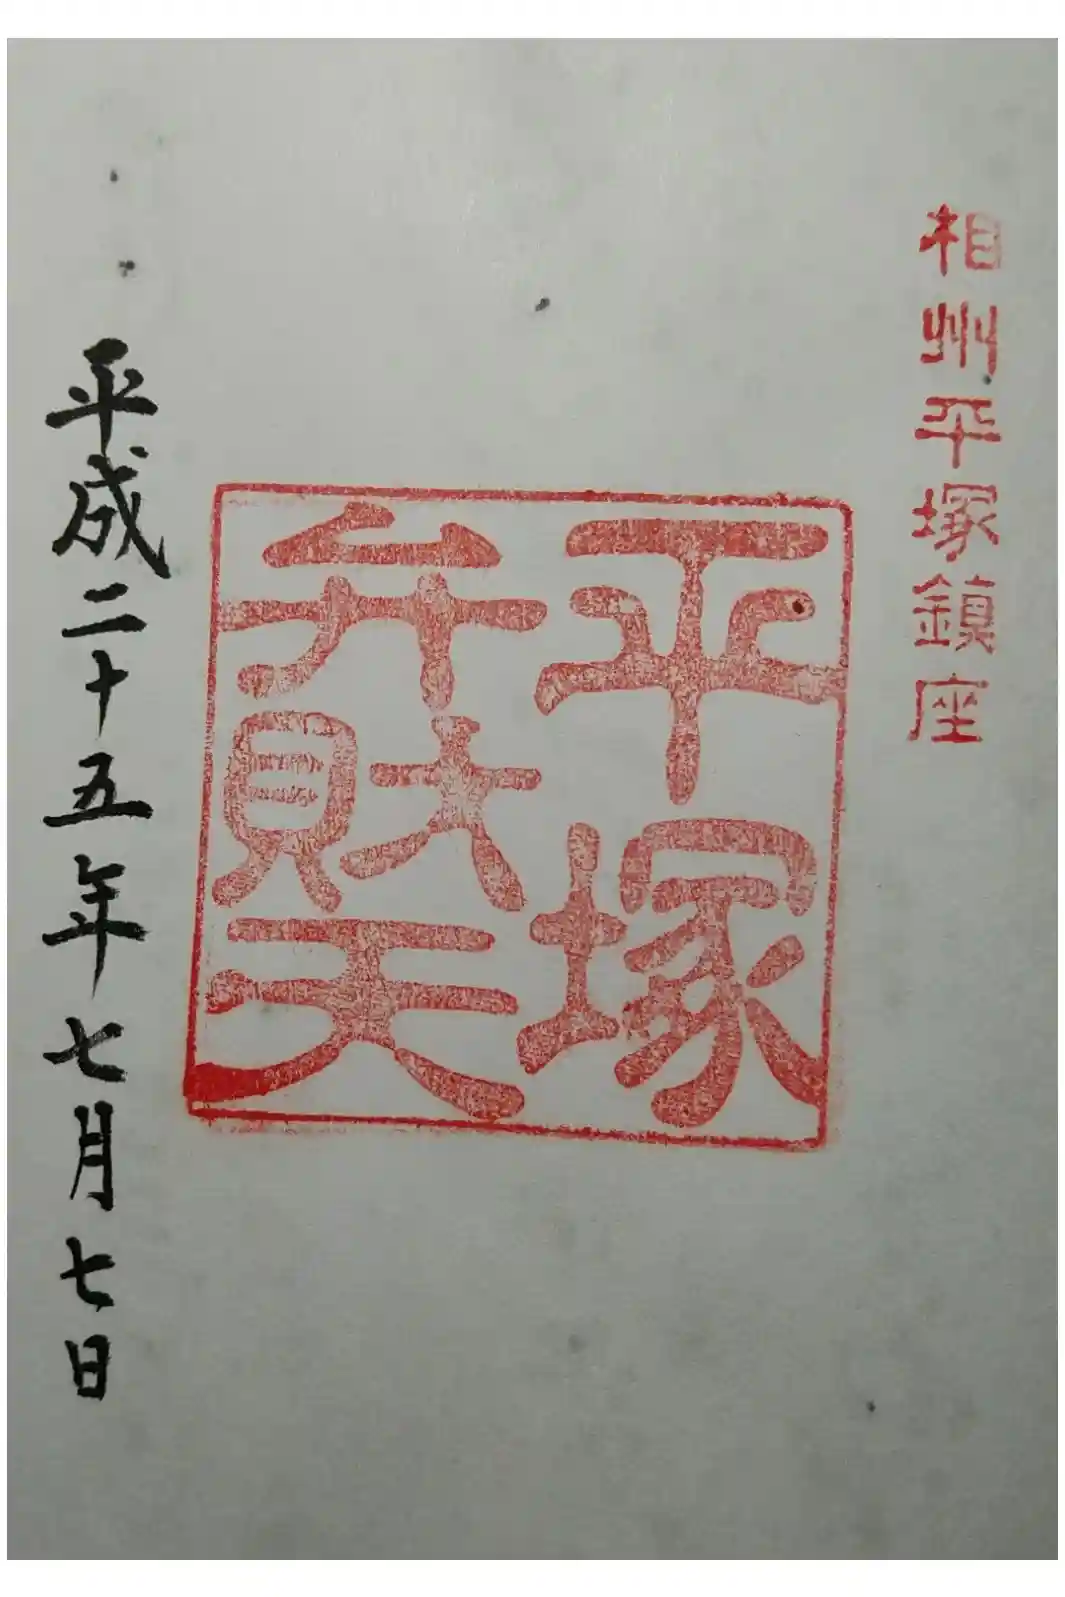 相州平塚鎮座
平塚
弁財天
平成二十五年七月七日